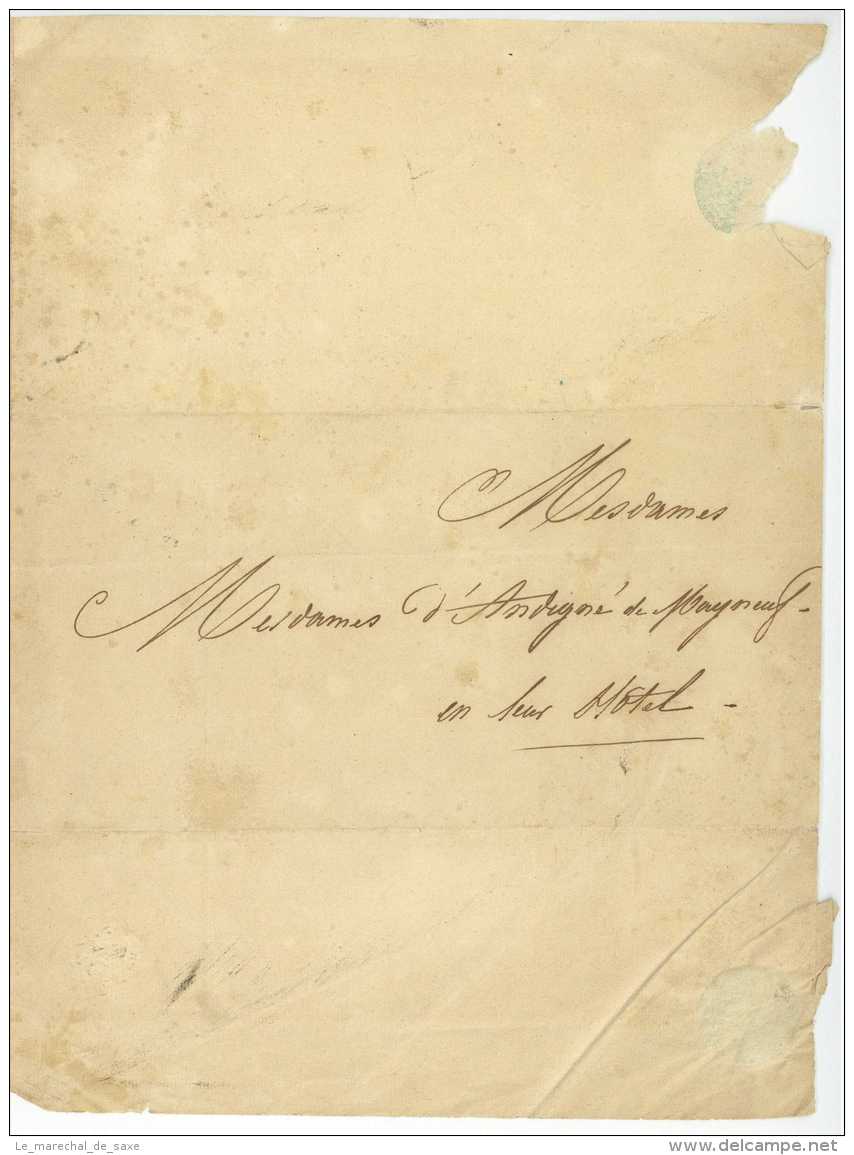 Mesdames
Mesdames d'Andigné de Mayneuf -
en leur Hôtel -
Le_marechal_de_saxe
www.delcampe.net